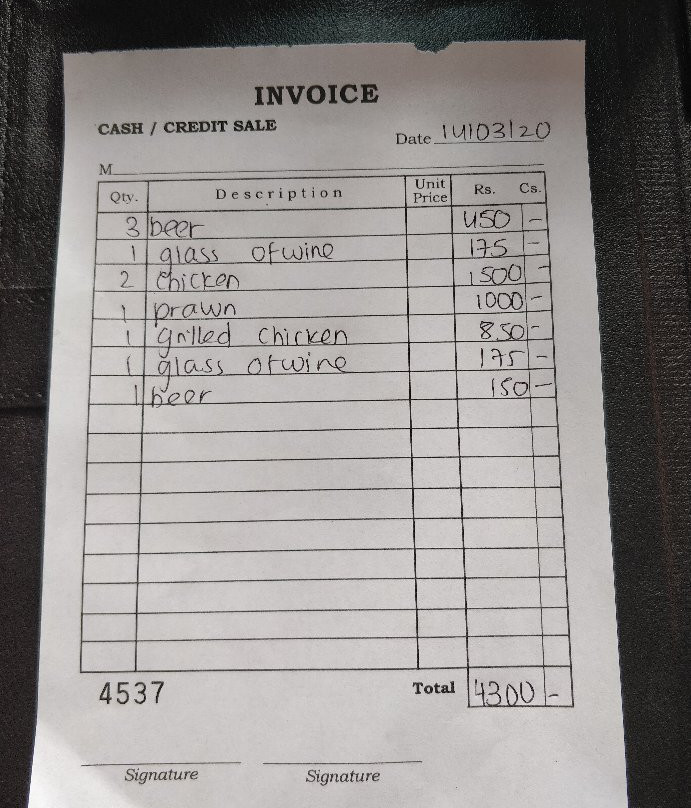 INVOICE
CASH / CREDIT SALE
Date 14/03/20
M
Qty. Description Unit Price Rs. Cs.
3 beer 450 -
1 glass of wine 175 -
2 chicken 1500 -
1 prawn 1000 -
1 grilled chicken 850 -
1 glass of wine 175 -
1 beer 150 -
4537 Total 4300 -
Signature Signature